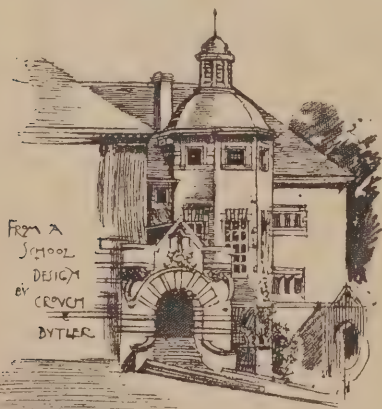 FROM A
SCHOOL
DESIGN
BY
CROVCH
&
BVTLER